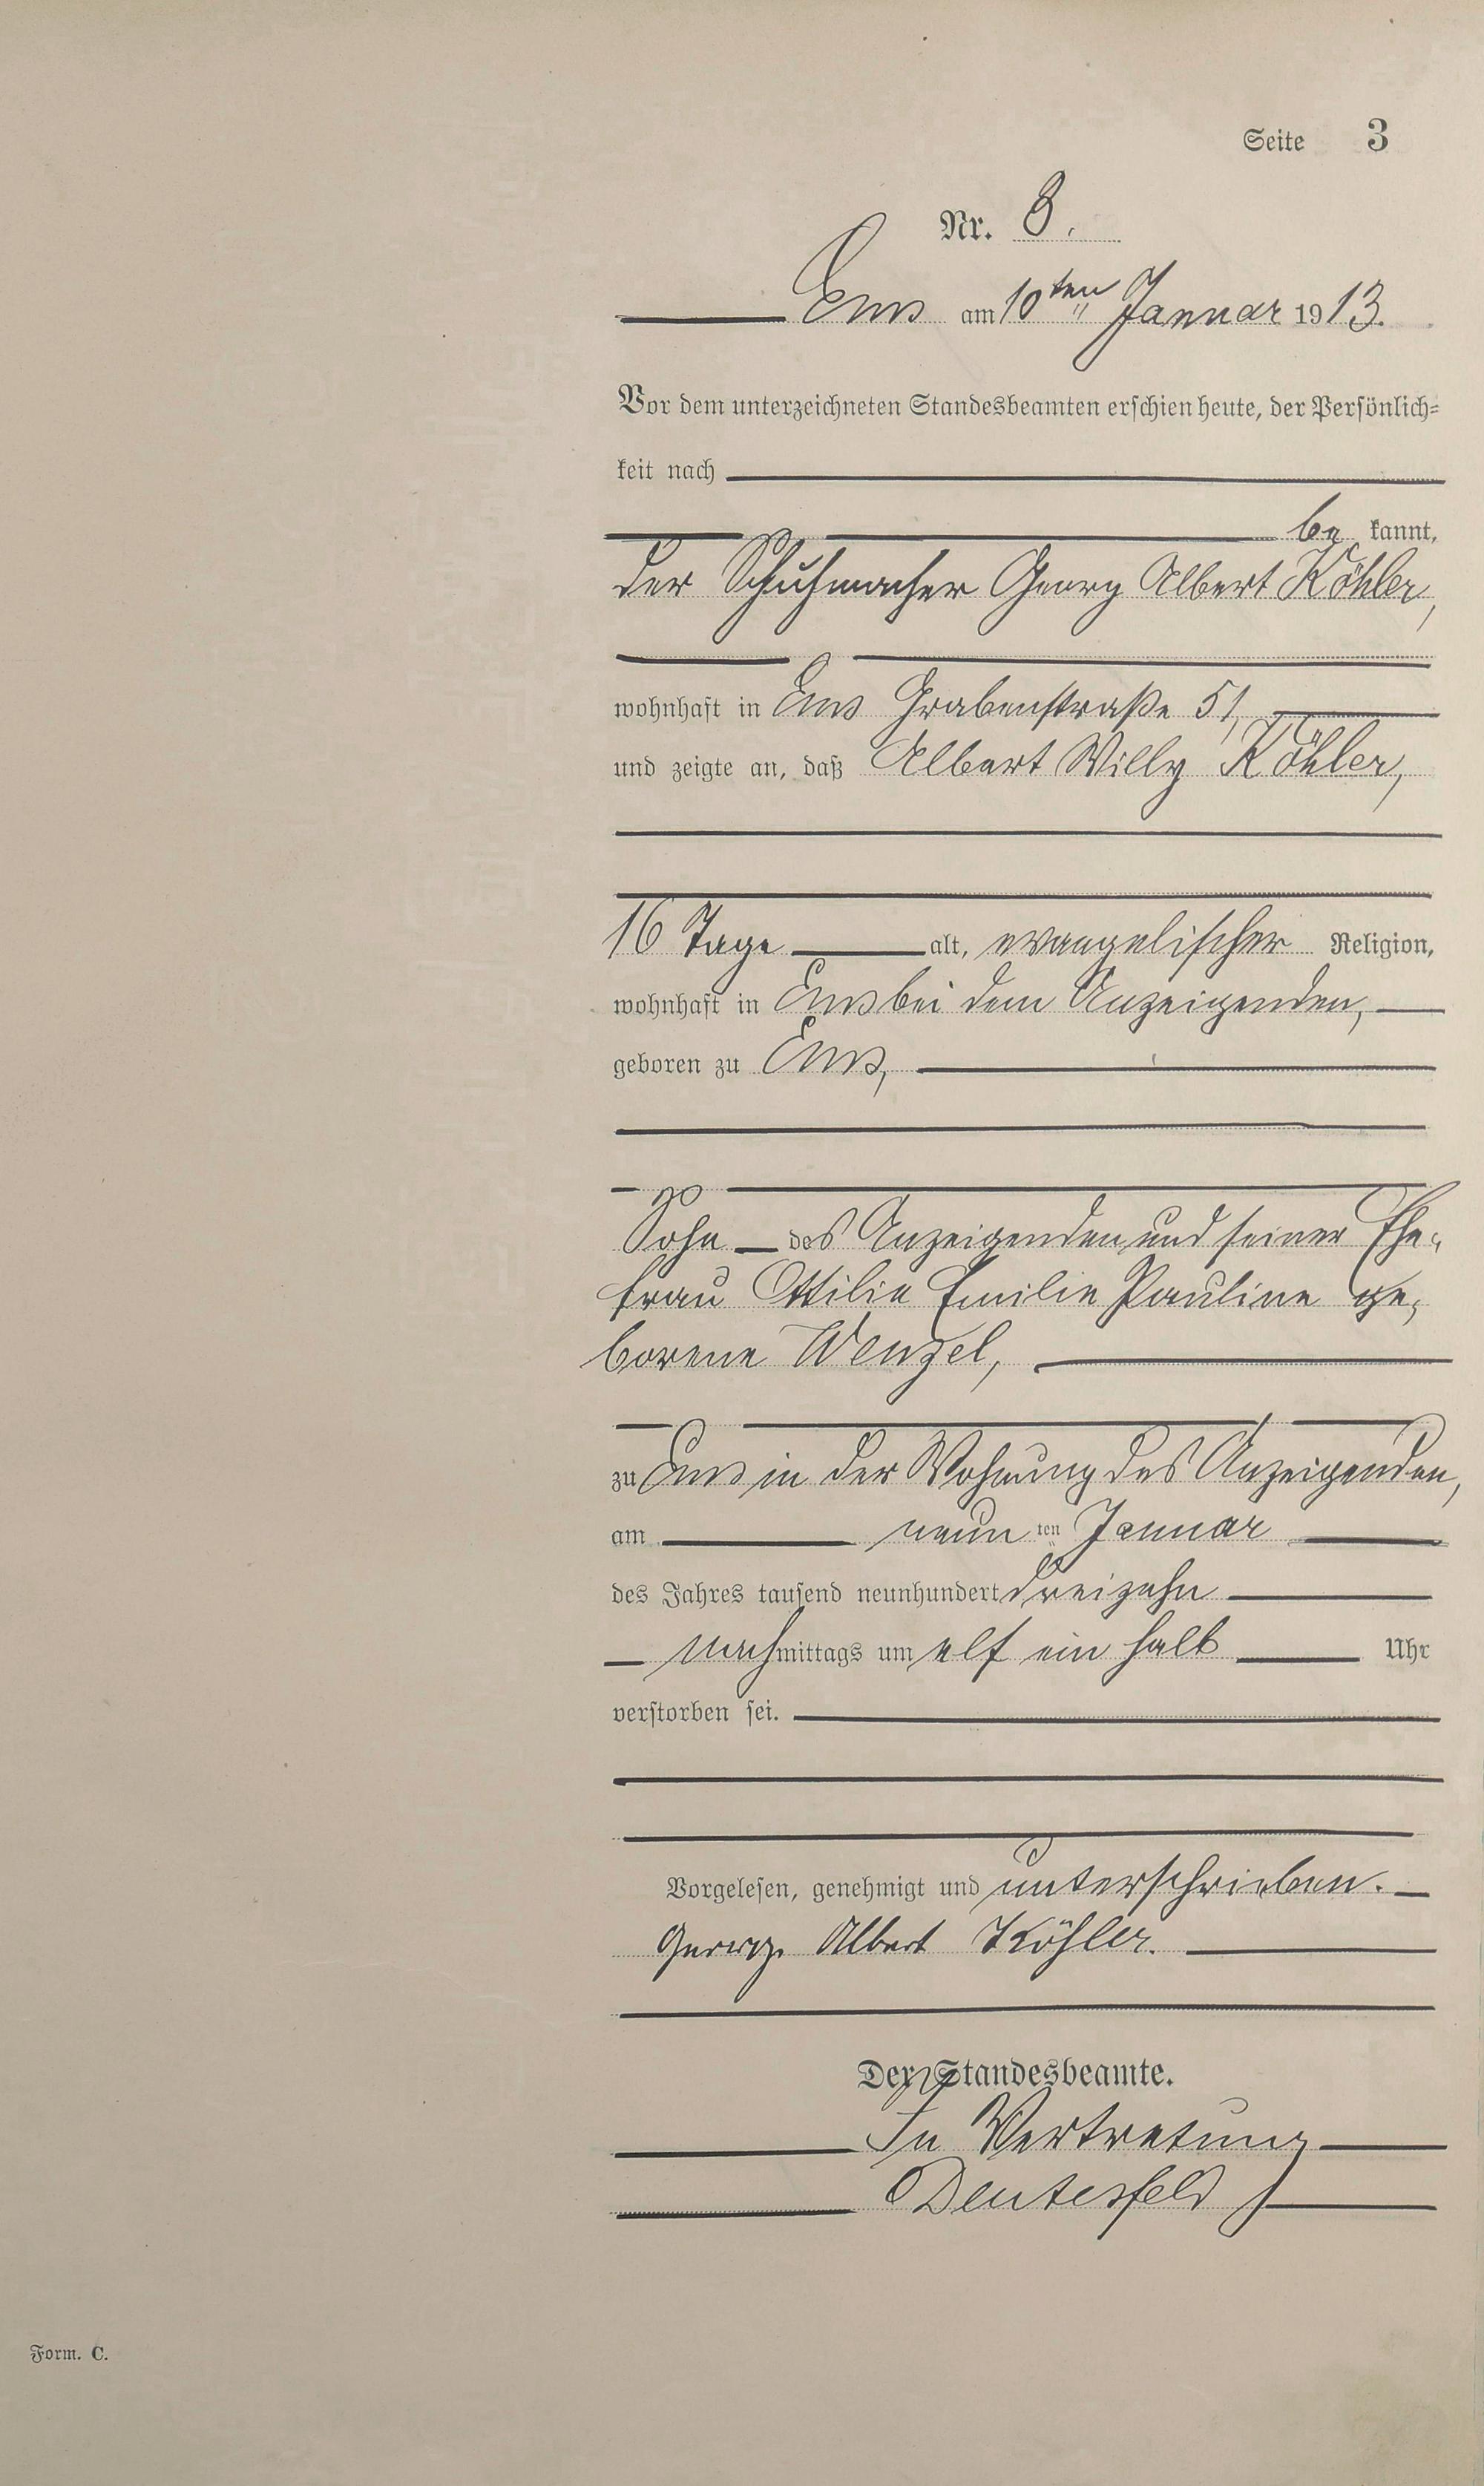 Seite 3
Nr. 8.
Ems am 10ten Januar 1913.
Vor dem unterzeichneten Standesbeamten erschien heute, der Persönlich-
keit nach
be kannt,
der Schuhmacher Georg Albert Köhler,
wohnhaft in Ems Grabenstraße 51,
und zeigte an, daß Albert Willy Köhler,
16 Tage alt, evangelischer Religion,
wohnhaft in Ems bei dem Anzeigenden,
geboren zu Ems,
Sohn des Anzeigenden und seiner Ehe-
frau Ottilie Emilie Pauline ge-
borene Wenzel,
zu Ems in der Wohnung des Anzeigenden,
am neun ten Januar
des Jahres tausend neunhundert dreizehn
nachmittags um elf ein halb Uhr
verstorben sei.
Vorgelesen, genehmigt und unterschrieben.
Georg Albert Köhler.
Der Standesbeamte.
In Vertretung
Deutesfeld
Form. C.